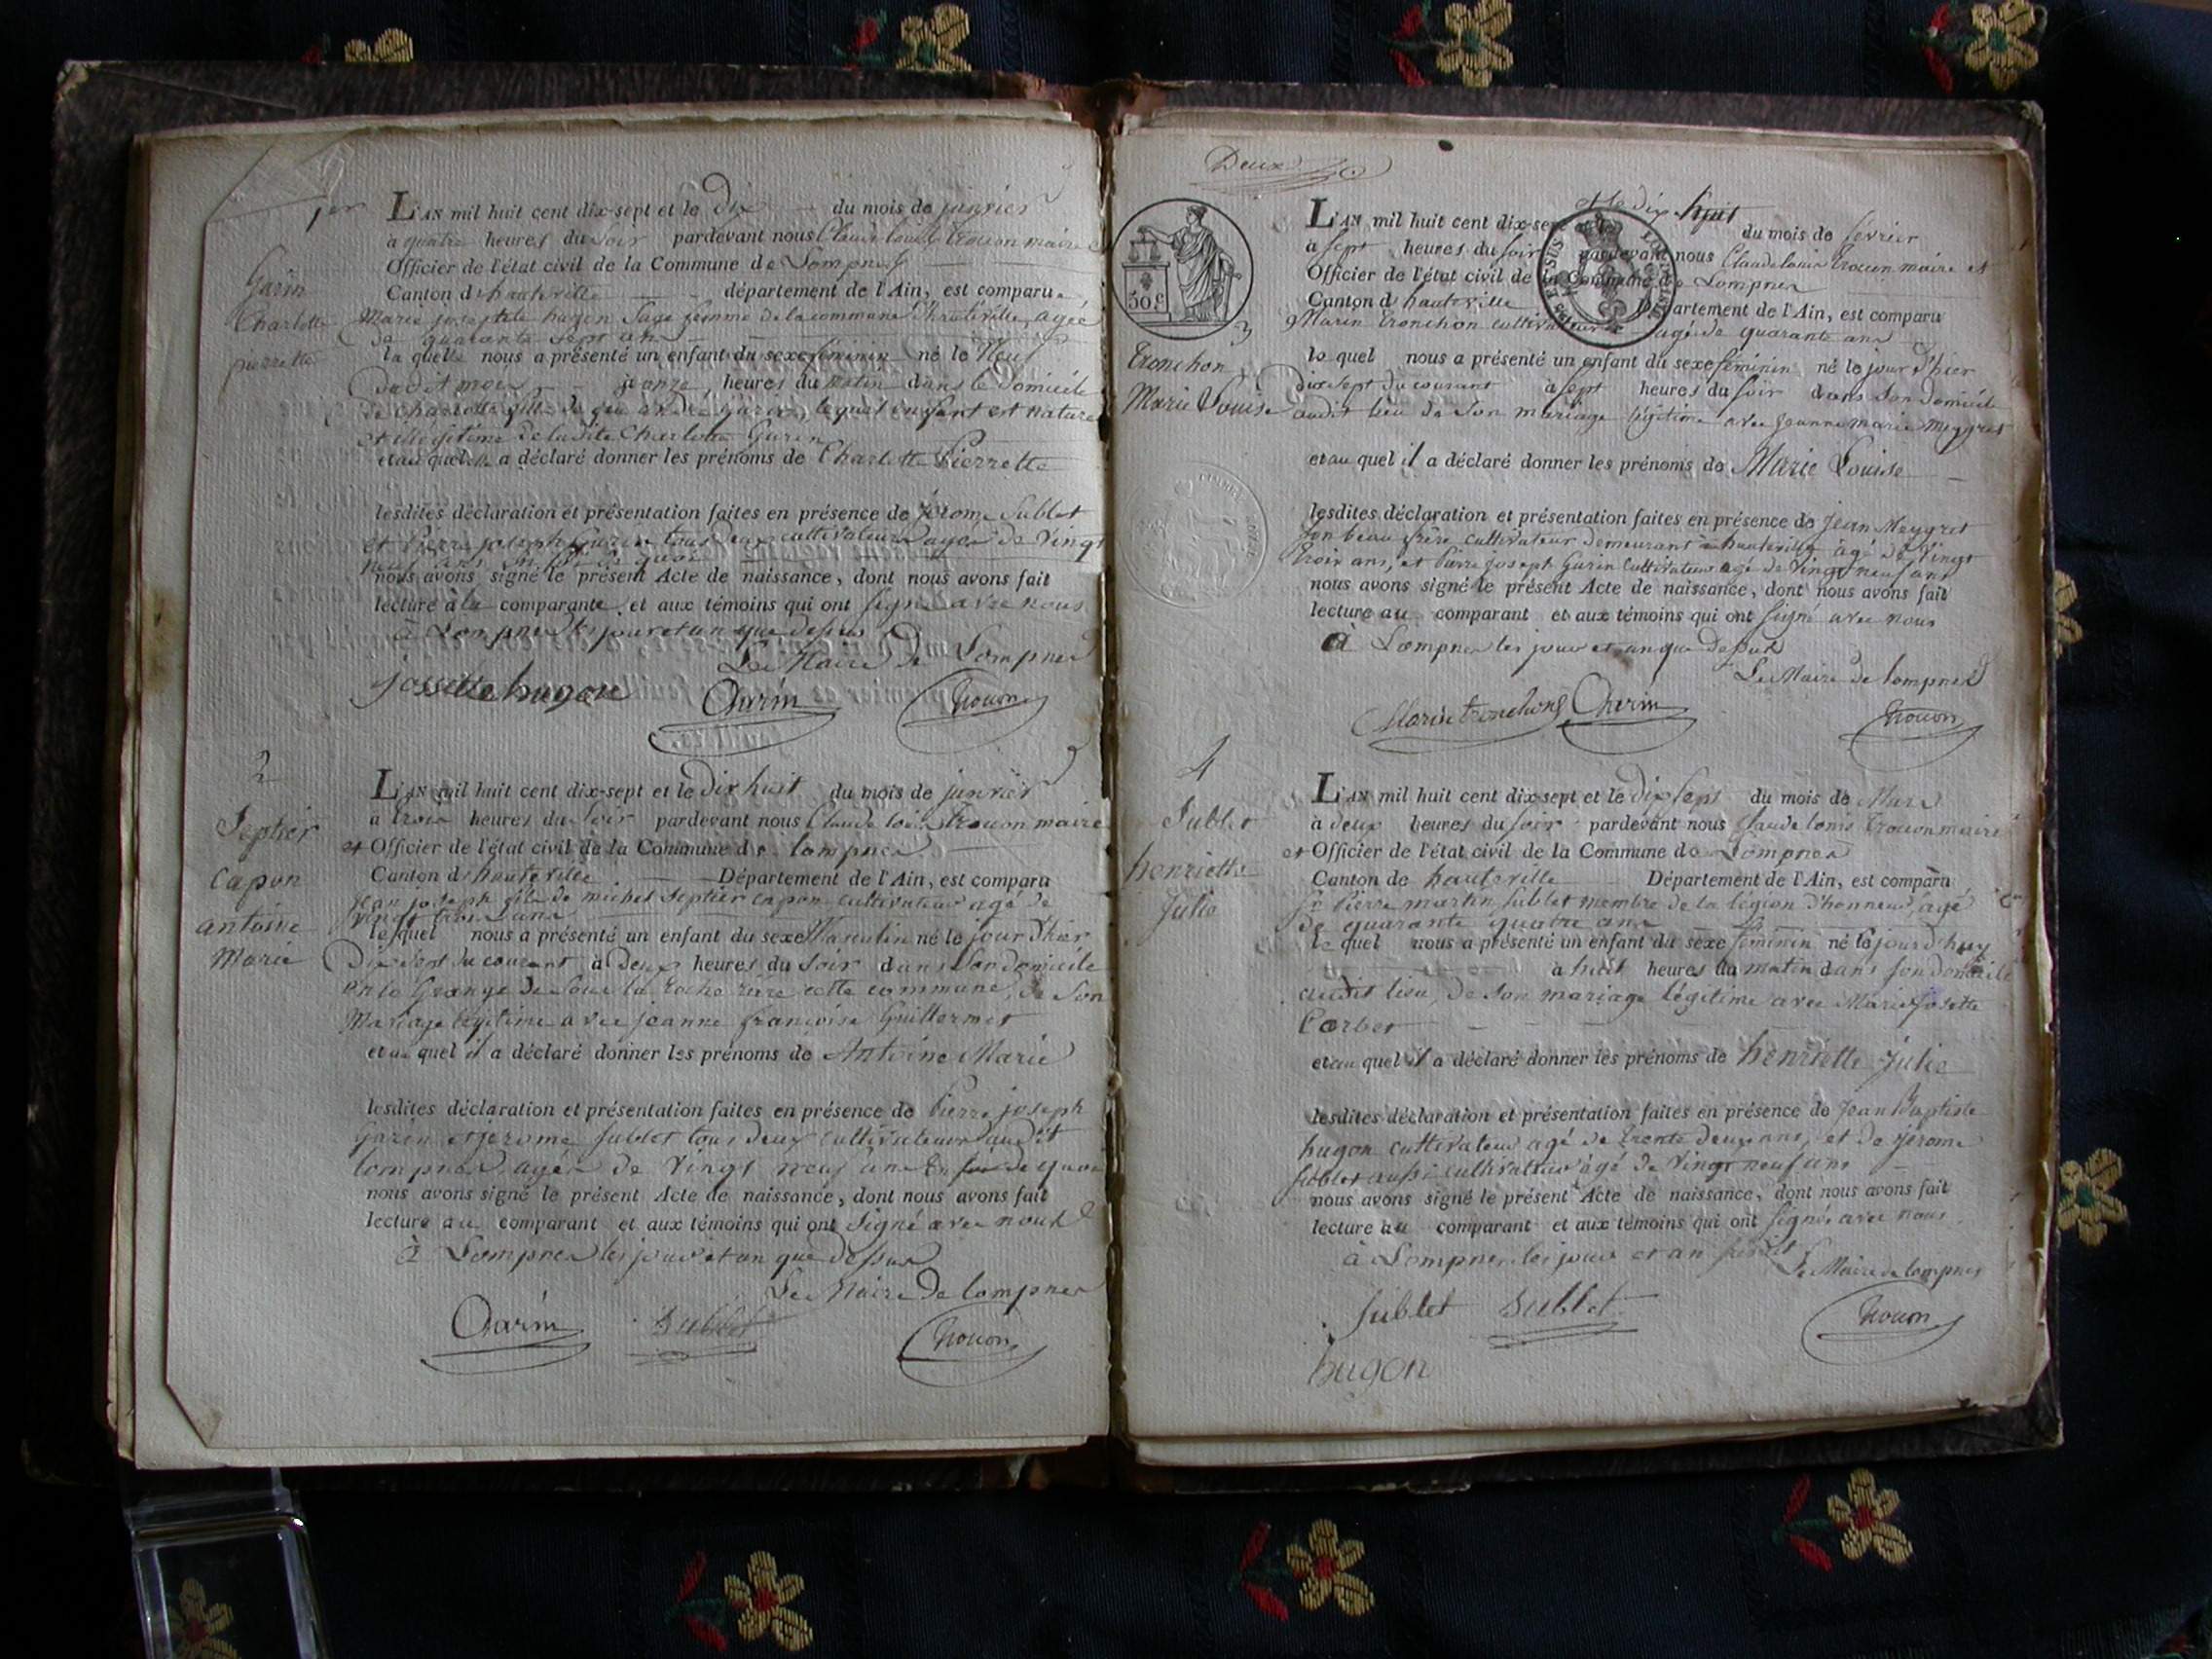 1er
Garin
Charlotte
pierrette
L'AN mil huit cent dix-sept et le dix du mois de janvier
à quatre heures du soir pardevant nous Claude louis trouon maire et
Officier de l'état civil de la Commune de Lompnes
Canton d'hauteville département de l'Ain, est comparue
Marie josephte hugon Sage femme de la commune d'hauteville, agée
de quarante sept ans
la quelle nous a présenté un enfant du sexe feminin né le Neuf
dudit mois à onze heures du matin dans le domicile
de charlotte fille de feu andré Garin, lequel enfant est naturel
et illégitime de ladite Charlotte Garin
et au quel elle a déclaré donner les prénoms de Charlotte Pierrette
lesdites déclaration et présentation faites en présence de jérome Sublet
et Pierre joseph Garin tous deux cultivateurs agés de Vingt
neuf ans en foi de quoi
nous avons signé le présent Acte de naissance, dont nous avons fait
lecture à la comparante et aux témoins qui ont signé avec nous
à Lompnes les jour et an que dessus
Le Maire de Lompnes
jossette hugon Garin Trouon
2
Septier
Capon
antoine
Marie
L'AN mil huit cent dix-sept et le dix huit du mois de janvier
à trois heures du soir pardevant nous Claude louis Trouon maire
et Officier de l'état civil de la Commune de lompnes
Canton d'hauteville Département de l'Ain, est comparu
jean joseph fils de michel Septier capon cultivateur agé de
vingt trois ans
lequel nous a présenté un enfant du sexe Masculin né le jour d'hier
Dix sept du courant à Deux heures du Soir dans son domicile
en la Grange de sous la roche rière cette commune, de Son
Mariage légitime avec jeanne françoise Guillermet
et au quel il a déclaré donner les prénoms de Antoine Marie
lesdites déclaration et présentation faites en présence de Pierre joseph
Garin et jerome Sublet tous deux cultivateurs audit
lompnes agés de Vingt neuf ans En foi de quoi
nous avons signé le présent Acte de naissance, dont nous avons fait
lecture au comparant et aux témoins qui ont Signé avec nous
à Lompnes les jour et an que dessus
Le Maire de lompnes
Garin Sublet Trouon
Deux
50 c
3
Tronchon
Marie Louise
et le dix huit
L'AN mil huit cent dix-sept et le du mois de fevrier
à sept heures du soir pardevant nous Claude louis Trouon maire et
Officier de l'état civil de la Commune de Lompnes
Canton d'hauteville Département de l'Ain, est comparu
Marin Tronchon cultivateur agé de quarante ans
le quel nous a présenté un enfant du sexe féminin né le jour d'hier
dix sept du courant à sept heures du soir dans son domicile
audit lieu de Son mariage légitime avec jeanne marie Meygret
et au quel il a déclaré donner les prénoms de Marie Louise
lesdites déclaration et présentation faites en présence de Jean Meygret
son beau frère cultivateur demeurant à hauteville agé de Vingt
trois ans, et Pierre joseph Garin cultivateur agé de vingt neuf ans
nous avons signé le présent Acte de naissance, dont nous avons fait
lecture au comparant et aux témoins qui ont signé avec nous
à Lompnes les jour et an que dessus
Le Maire de lompnes
Marin tronchon Garin Trouon
4
Sublet
henriette
Julie
L'AN mil huit cent dix-sept et le dix sept du mois de Mars
à deux heures du soir pardevant nous Claude louis Trouon maire
et Officier de l'état civil de la Commune de Lompnes
Canton de hauteville Département de l'Ain, est comparu
Sr Pierre martin Sublet membre de la légion d'honneur, agé
de quarante quatre ans
le quel nous a présenté un enfant du sexe feminin né le jourd'huy
à huit heures du matin dans son domicile
audit lieu, de Son mariage légitime avec Marie Josette
Corbet
et au quel il a déclaré donner les prénoms de henriette Julie
lesdites déclaration et présentation faites en présence de Jean Baptiste
hugon cultivateur agé de trente deux ans, et de jerome
Sublet aussi cultivateur agé de Vingt neuf ans
nous avons signé le présent Acte de naissance, dont nous avons fait
lecture au comparant et aux témoins qui ont signés avec nous
à Lompnes les jour et an susdit
Le Maire de lompnes
Sublet Sublet Trouon
hugon